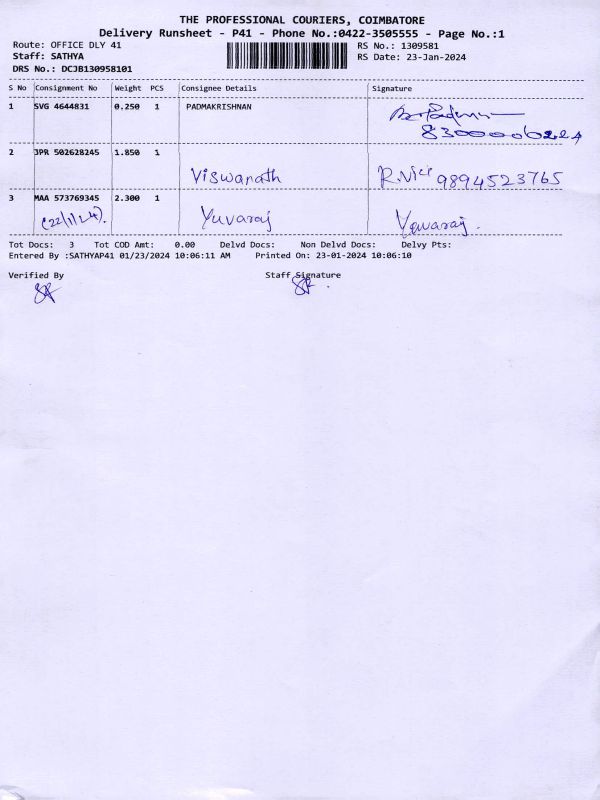 THE PROFESSIONAL COURIERS, COIMBATORE
Delivery Runsheet - P41 - Phone No.:0422-3505555 - Page No.:1
Route: OFFICE DLY 41 RS No.: 1309581
Staff: SATHYA RS Date: 23-Jan-2024
DRS No.: DCJB130958101
S No Consignment No Weight PCS Consignee Details Signature
1 SVG 4644831 0.250 1 PADMAKRISHNAN
8300000224
2 JPR 502628245 1.850 1
Viswanath 9894523765
3 MAA 573769345 2.300 1
(22/1/24). Yuvaraj Yuvaraj.
Tot Docs: 3 Tot COD Amt: 0.00 Delvd Docs: Non Delvd Docs: Delvy Pts:
Entered By :SATHYAP41 01/23/2024 10:06:11 AM Printed On: 23-01-2024 10:06:10
Verified By Staff Signature